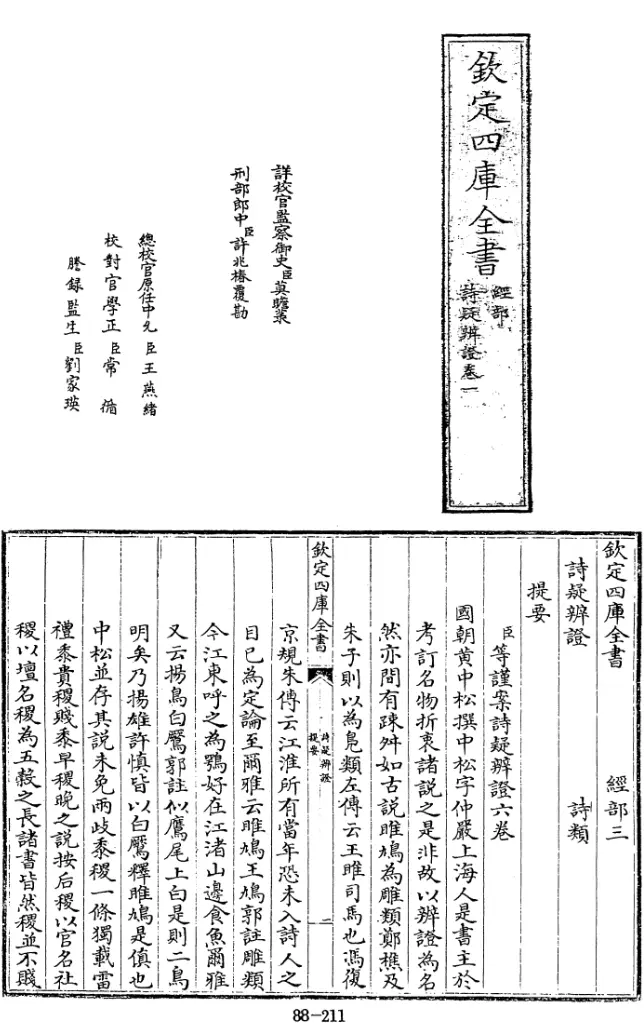 欽定四庫全書
經部
詩疑辨證卷一
詳校官監察御史臣莫瞻菉
刑部郎中臣許兆椿覆勘
總校官原任中允臣王燕緒
校對官學正臣常循
謄錄監生臣劉家瑛
欽定四庫全書 經部三
詩疑辨證 詩類
提要
臣等謹案詩疑辨證六卷
國朝黄中松撰中松字仲嚴上海人是書主於
考訂名物折衷諸説之是非故以辨證為名
然亦間有疎舛如古説雎鳩為雕類鄭樵及
朱子則以為鳬類左傳云王雎司馬也馮復
欽定四庫全書
詩疑辨證
提要
二
京規朱傳云江淮所有當年恐未入詩人之
目已為定論至爾雅云雎鳩王鳩郭註雕類
今江東呼之為鶚好在江渚山邊食魚爾雅
又云揚鳥白鷢郭註似鷹尾上白是則二鳥
明矣乃揚雄許慎皆以白鷢釋雎鳩是偩也
中松並存其説未免兩歧黍稷一條獨載雷
禮黍貴稷賤黍早稷晚之説按后稷以官名社
稷以壇名稷為五穀之長諸書皆然稷並不賤
88-211